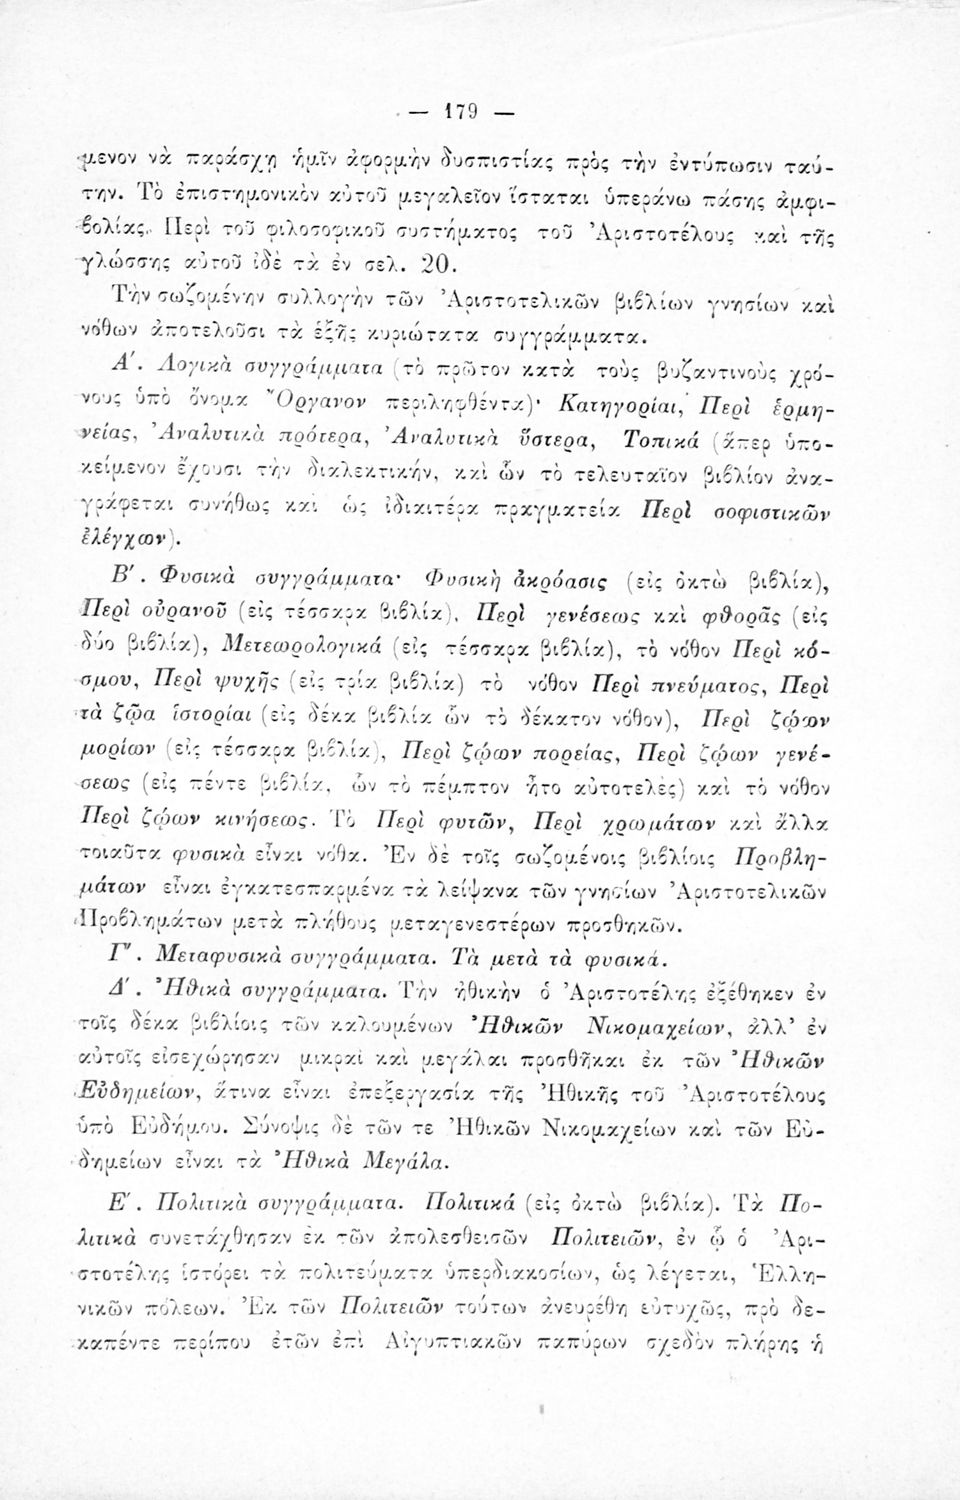 — 179 —
μενον νὰ παράσχῃ ἡμῖν ἀφορμὴν δυσπιστίας πρὸς τὴν ἐντύπωσιν ταύ-
την. Τὸ ἐπιστημονικὸν αὐτοῦ μεγαλεῖον ἵσταται ὑπεράνω πάσης ἀμφι-
βολίας. Περὶ τοῦ φιλοσοφικοῦ συστήματος τοῦ Ἀριστοτέλους καὶ τῆς
γλώσσης αὐτοῦ ἰδὲ τὰ ἐν σελ. 20.
Τὴν σωζομένην συλλογὴν τῶν Ἀριστοτελικῶν βιβλίων γνησίων καὶ
νόθων ἀποτελοῦσι τὰ ἑξῆς κυριώτατα συγγράμματα.
Α΄. Λογικὰ συγγράμματα (τὸ πρῶτον κατὰ τοὺς βυζαντινοὺς χρό-
νους ὑπὸ ὄνομα Ὄργανον περιληφθέντα)· Κατηγορίαι, Περὶ ἑρμη-
νείας, Ἀναλυτικὰ πρότερα, Ἀναλυτικὰ ὕστερα, Τοπικά (ἅπερ ὑπο-
κείμενον ἔχουσι τὴν διαλεκτικήν, καὶ ὧν τὸ τελευταῖον βιβλίον ἀνα-
γράφεται συνήθως καὶ ὡς ἰδιαιτέρα πραγματεία Περὶ σοφιστικῶν
ἐλέγχων).
Β΄. Φυσικὰ συγγράμματα· Φυσικὴ ἀκρόασις (εἰς ὀκτὼ βιβλία),
Περὶ οὐρανοῦ (εἰς τέσσαρα βιβλία), Περὶ γενέσεως καὶ φθορᾶς (εἰς
δύο βιβλία), Μετεωρολογικά (εἰς τέσσαρα βιβλία), τὸ νόθον Περὶ κό-
σμου, Περὶ ψυχῆς (εἰς τρία βιβλία) τὸ νόθον Περὶ πνεύματος, Περὶ
τὰ ζῷα ἱστορίαι (εἰς δέκα βιβλία ὧν τὸ δέκατον νόθον), Περὶ ζῴων
μορίων (εἰς τέσσαρα βιβλία), Περὶ ζῴων πορείας, Περὶ ζῴων γενέ-
σεως (εἰς πέντε βιβλία, ὧν τὸ πέμπτον ἦτο αὐτοτελὲς) καὶ τὸ νόθον
Περὶ ζῴων κινήσεως. Τὸ Περὶ φυτῶν, Περὶ χρωμάτων καὶ ἄλλα
τοιαῦτα φυσικὰ εἶναι νόθα. Ἐν δὲ τοῖς σωζομένοις βιβλίοις Προβλη-
μάτων εἶναι ἐγκατεσπαρμένα τὰ λείψανα τῶν γνησίων Ἀριστοτελικῶν
Προβλημάτων μετὰ πλήθους μεταγενεστέρων προσθηκῶν.
Γ΄. Μεταφυσικὰ συγγράμματα. Τὰ μετὰ τὰ φυσικά.
Δ΄. Ἠθικὰ συγγράμματα. Τὴν ἠθικὴν ὁ Ἀριστοτέλης ἐξέθηκεν ἐν
τοῖς δέκα βιβλίοις τῶν καλουμένων Ἠθικῶν Νικομαχείων, ἀλλ’ ἐν
αὐτοῖς εἰσεχώρησαν μικραὶ καὶ μεγάλαι προσθῆκαι ἐκ τῶν Ἠθικῶν
Εὐδημείων, ἅτινα εἶναι ἐπεξεργασία τῆς Ἠθικῆς τοῦ Ἀριστοτέλους
ὑπὸ Εὐδήμου. Σύνοψις δὲ τῶν τε Ἠθικῶν Νικομαχείων καὶ τῶν Εὐ-
δημείων εἶναι τὰ Ἠθικὰ Μεγάλα.
Ε΄. Πολιτικὰ συγγράμματα. Πολιτικά (εἰς ὀκτὼ βιβλία). Τὰ Πο-
λιτικὰ συνετάχθησαν ἐκ τῶν ἀπολεσθεισῶν Πολιτειῶν, ἐν ᾧ ὁ Ἀρι-
στοτέλης ἱστόρει τὰ πολιτεύματα ὑπερδιακοσίων, ὡς λέγεται, Ἑλλη-
νικῶν πόλεων. Ἐκ τῶν Πολιτειῶν τούτων ἀνευρέθη εὐτυχῶς, πρὸ δε-
καπέντε περίπου ἐτῶν ἐπὶ Αἰγυπτιακῶν παπύρων σχεδὸν πλήρης ἡ